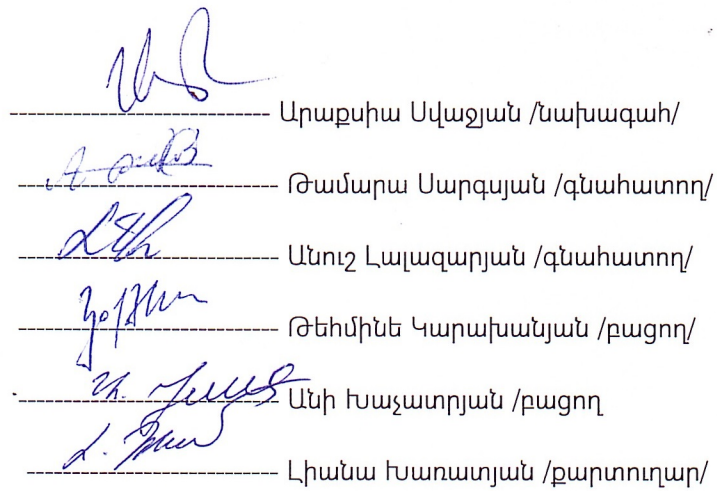 Արաքսիա Սվաջյան /նախագահ/
Թամարա Սարգսյան /գնահատող/
Անուշ Լալազարյան /գնահատող/
Թեհմինե Կարախանյան /բացող/
Անի Խաչատրյան /բացող
Լիանա Խառատյան /քարտուղար/